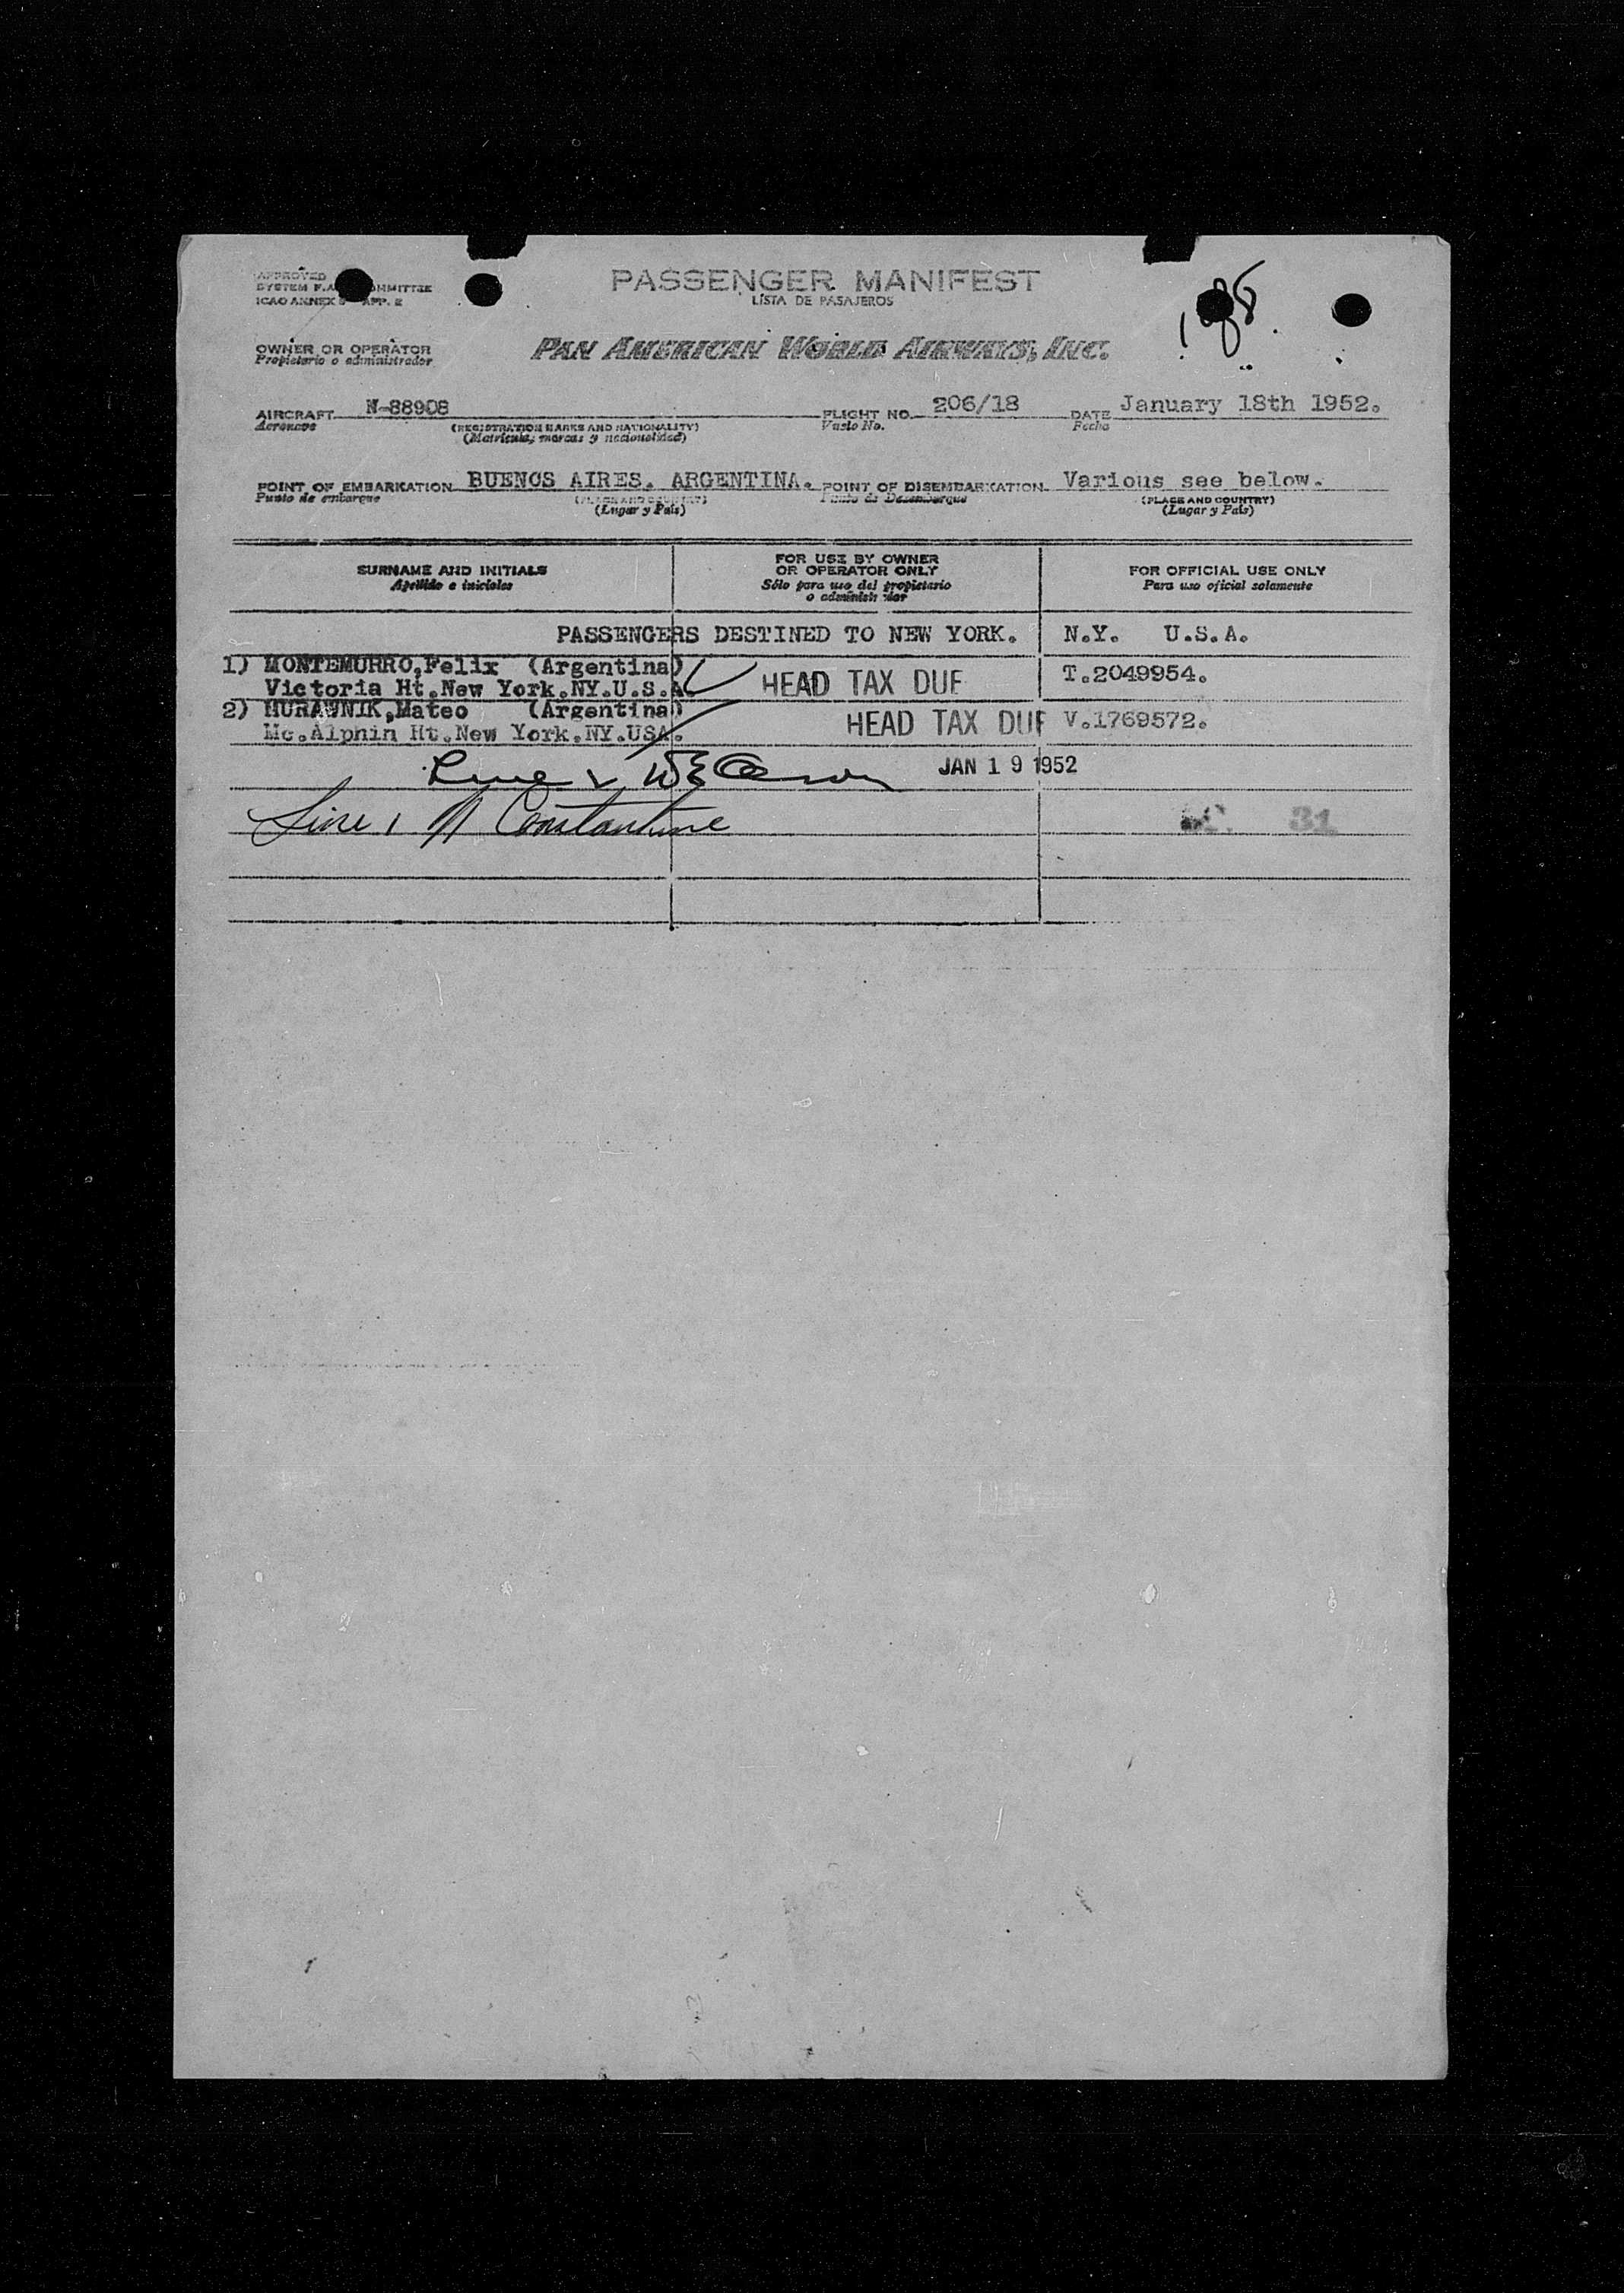 APPROVED
PASSENGER MANIFEST
LISTA DE PASAJEROS
SYSTEM F.A
ICAO ANNEX 9 APP. 2
OWNER OR OPERATOR
Propietario o administrador
PAN AMERICAN WORLD AIRWAYS, INC.
AIRCRAFT N-88908 FLIGHT NO. 206/18 DATE January 18th 1952.
Aeronave (REGISTRATION MARKS AND NATIONALITY) Vuelo No. Fecha
(Matrícula, marcas y nacionalidad)
POINT OF EMBARKATION BUENOS AIRES. ARGENTINA. POINT OF DISEMBARKATION Various see below.
Punto de embarque (PLACE AND COUNTRY) Punto de Desembarque (PLACE AND COUNTRY)
(Lugar y País) (Lugar y País)
SURNAME AND INITIALS
Apellido e iniciales
FOR USE BY OWNER
OR OPERATOR ONLY
Sólo para uso del propietario
o administrador
FOR OFFICIAL USE ONLY
Para uso oficial solamente
PASSENGERS DESTINED TO NEW YORK. N.Y. U.S.A.
1) MONTEMURRO,Felix (Argentina)
Victoria Ht.New York.NY.U.S.A. HEAD TAX DUE T.2049954.
2) MURAWNIK,Mateo (Argentina)
Mc.Alphin Ht.New York.NY.USA. HEAD TAX DUE V.1769572.
JAN 19 1952
Line 1 N Constantine
31